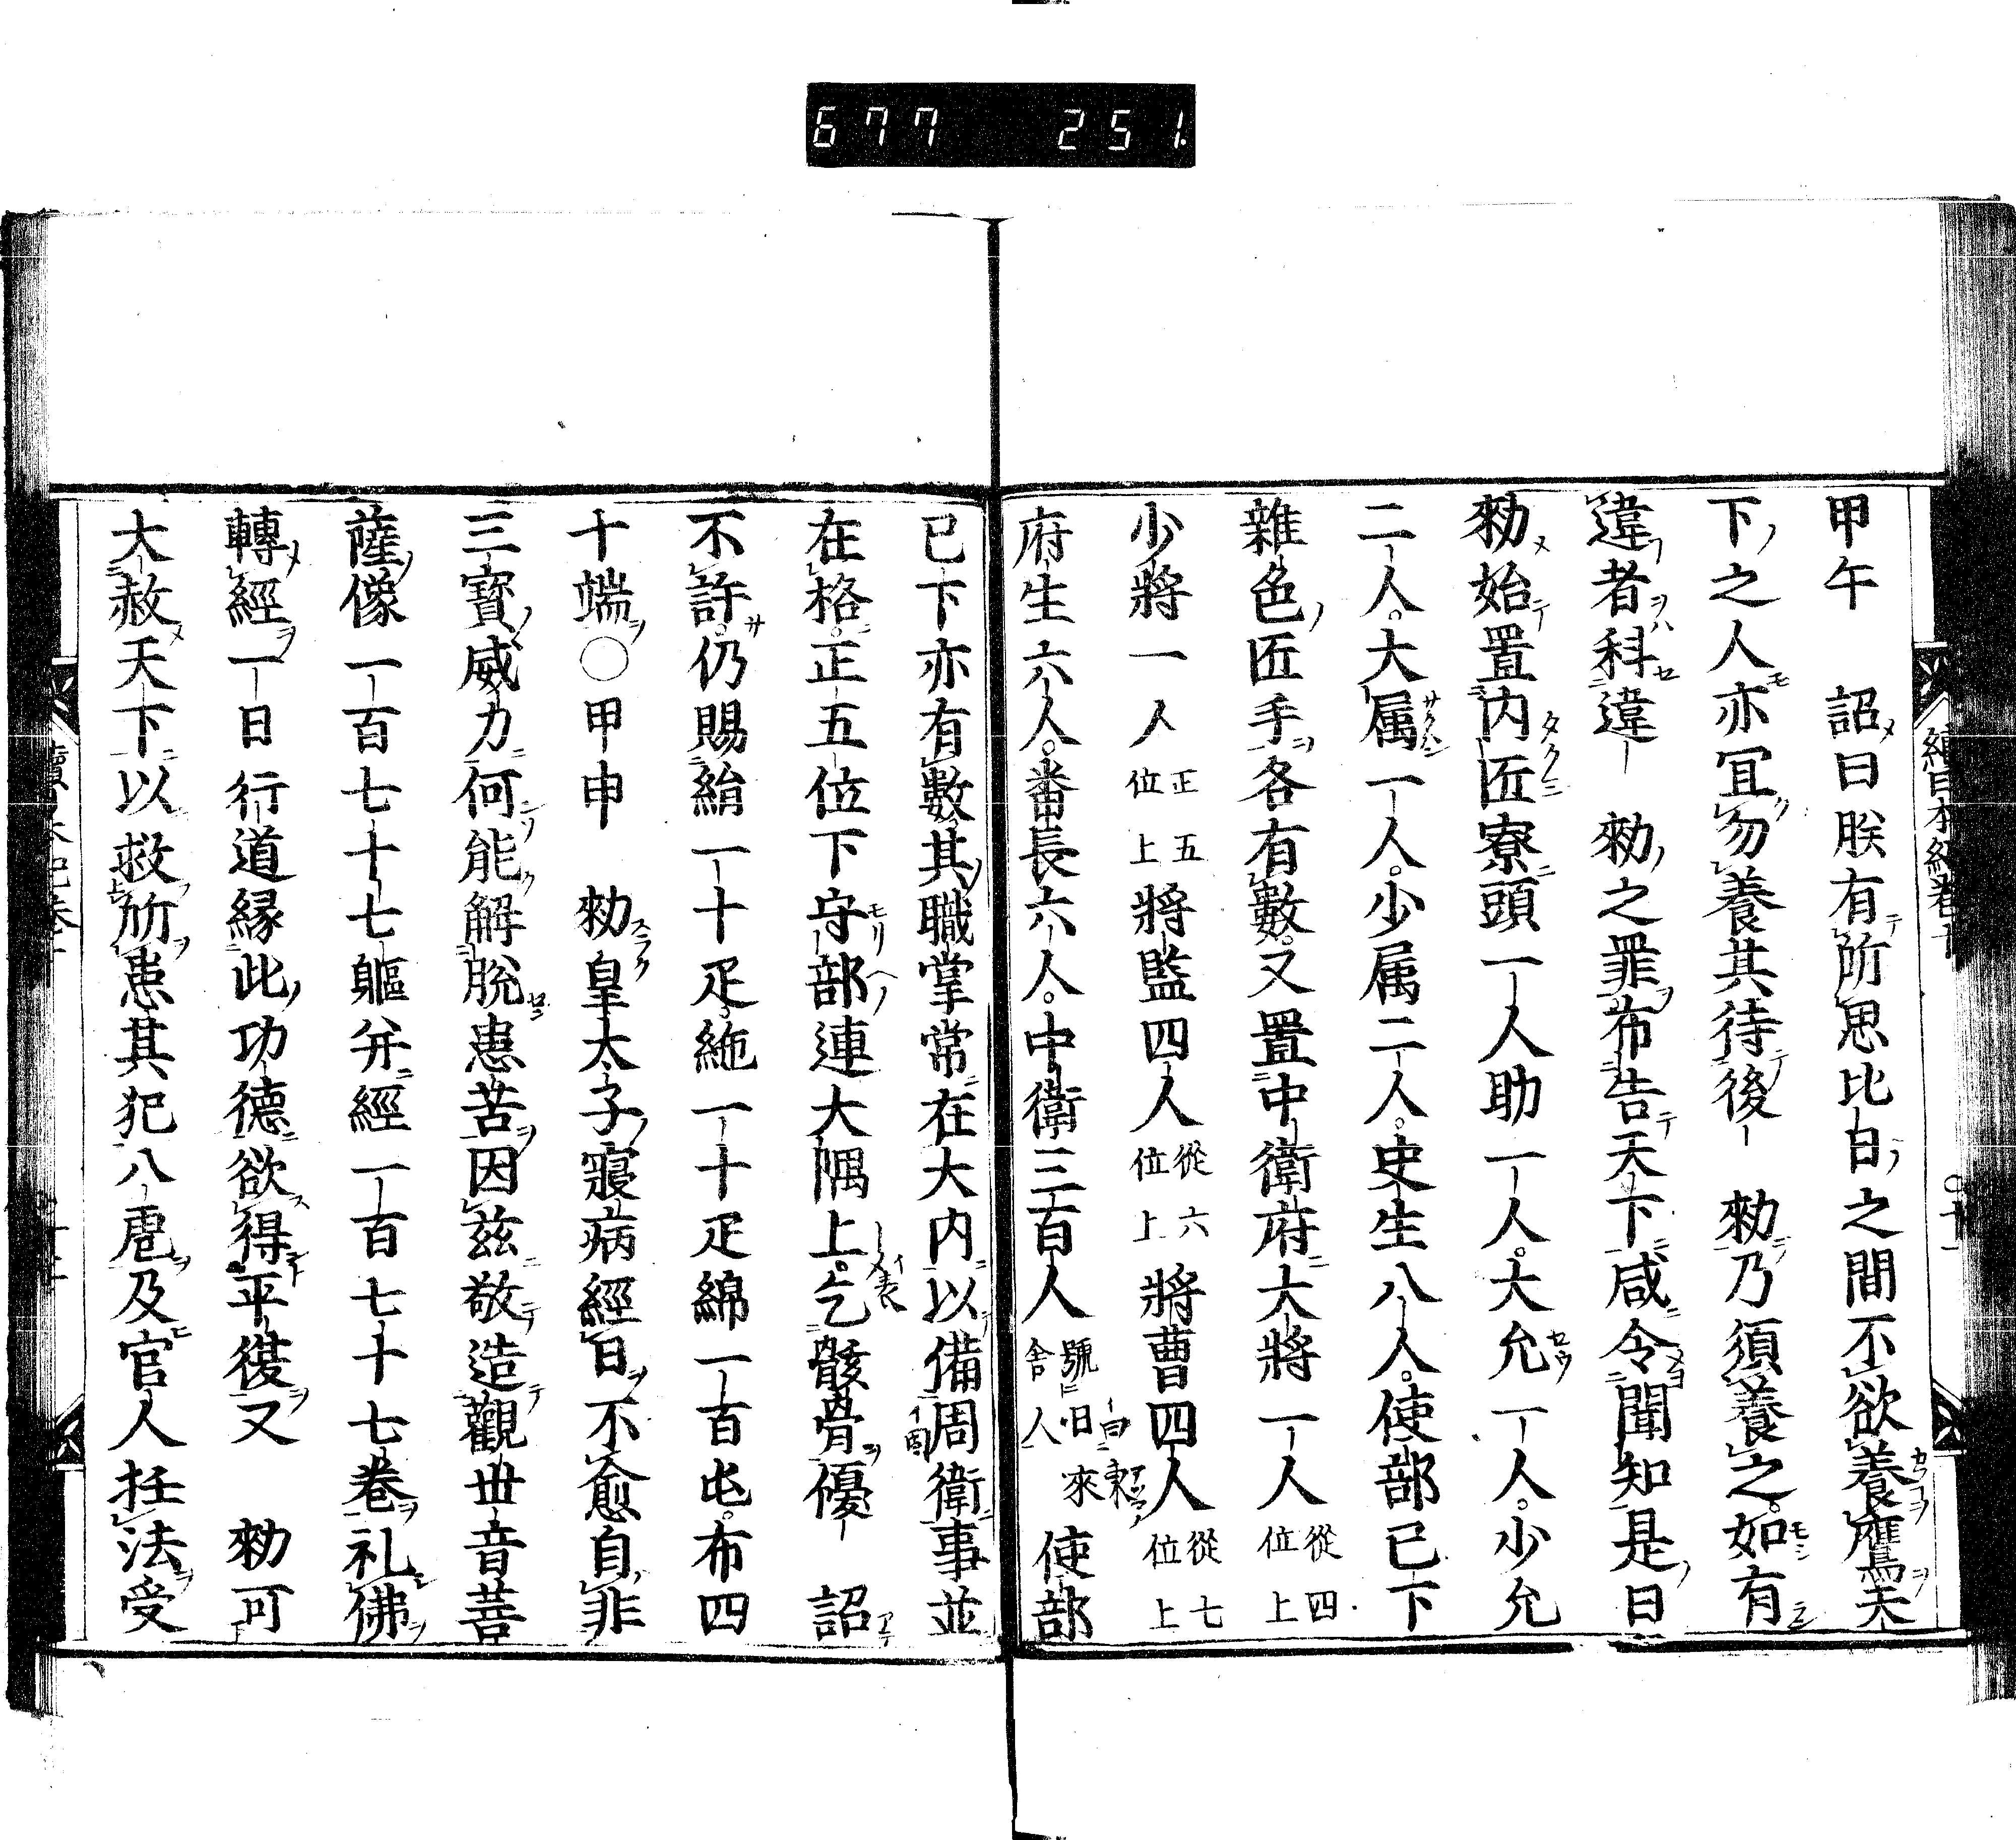 677 251
甲午 詔曰朕有所思比日之間不欲養鷹天
下之人亦冝勿養其待後勑乃須養之如有
違者科違勑之罪布告天下咸令聞知是日
勑始置内匠寮頭一人助一人大允一人少允
二人大属一人少属二人史生八人使部已下
雜色匠手各有數又置中衛府大將一人從四位上
少將一人正五位上將監四人從六位上將曹四人從七位上
府生六人番長六人中衛三百人號曰東舍人使部
已下亦有數其職掌常在大内以備周衛事並
在格正五位下守部連大隅上乞骸骨優詔
不許仍賜絹一十疋絁一十疋綿一百屯布四
十端○甲申 勑皇太子寢病經日不愈自非
三寶威力何能解脱患苦因兹敬造觀世音菩
薩像一百七十七軀并經一百七十七巻礼佛
轉經一日行道縁此功德欲得平復又 勑可
大赦天下以救所患其犯八虐及官人抂法受